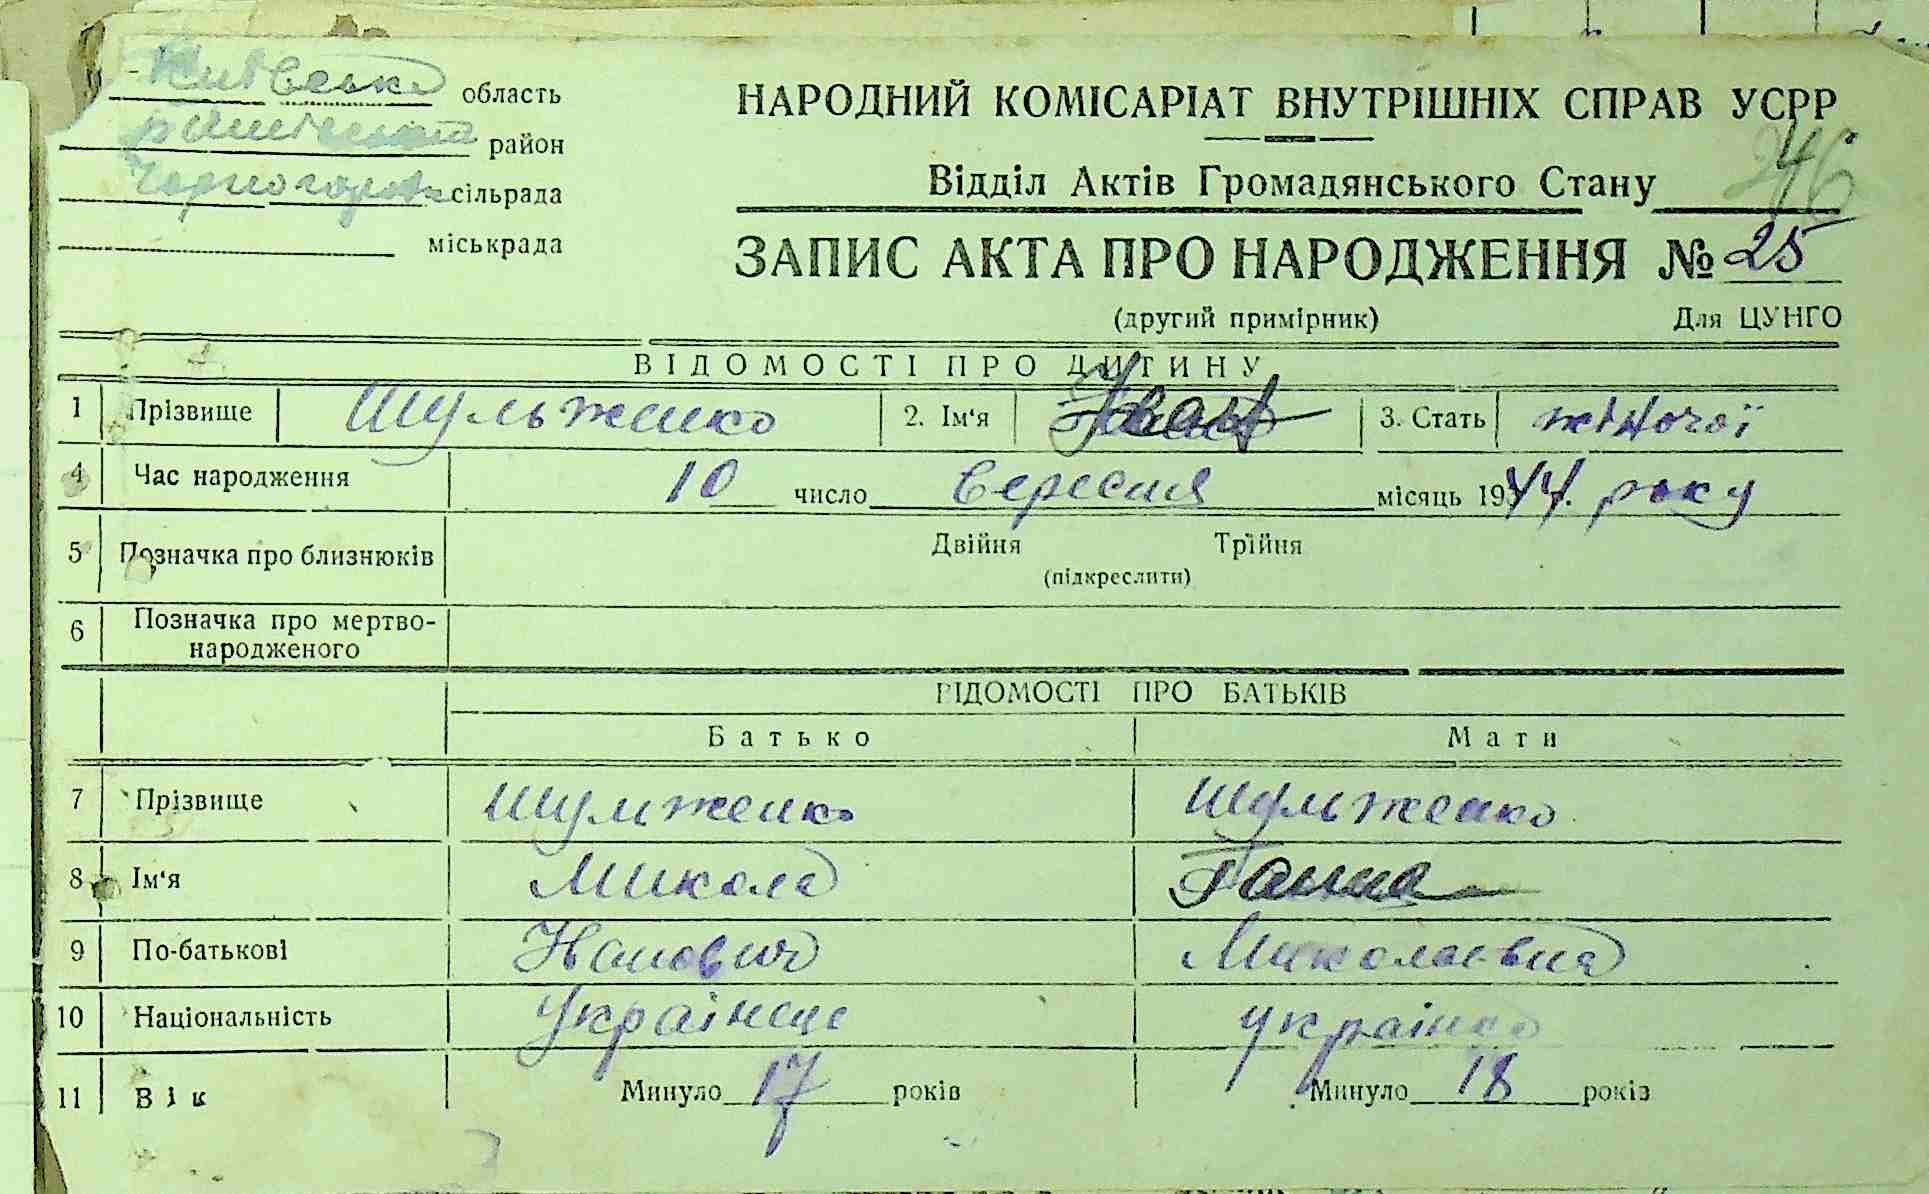 Київська область
район
сільрада
міськрада
НАРОДНИЙ КОМІСАРІАТ ВНУТРІШНІХ СПРАВ УСРР
Відділ Актів Громадянського Стану
246
ЗАПИС АКТА ПРО НАРОДЖЕННЯ № 25
(другий примірник) Для ЦУНГО
ВІДОМОСТІ ПРО ДИТИНУ
1 Прізвище Шульженко 2. Ім‘я 3. Стать жіночої
4 Час народження 10 число Вересня місяць 1944. року
5 Позначка про близнюків Двійня Трійня
(підкреслити)
6 Позначка про мертво-
народженого
ВІДОМОСТІ ПРО БАТЬКІВ
Батько Мати
7 Прізвище Шульженко Шульженко
8 Ім‘я Микола Ганна
9 По-батькові Миколаевна
10 Національність Українець українка
11 Вік Минуло 17 років Минуло 18 років